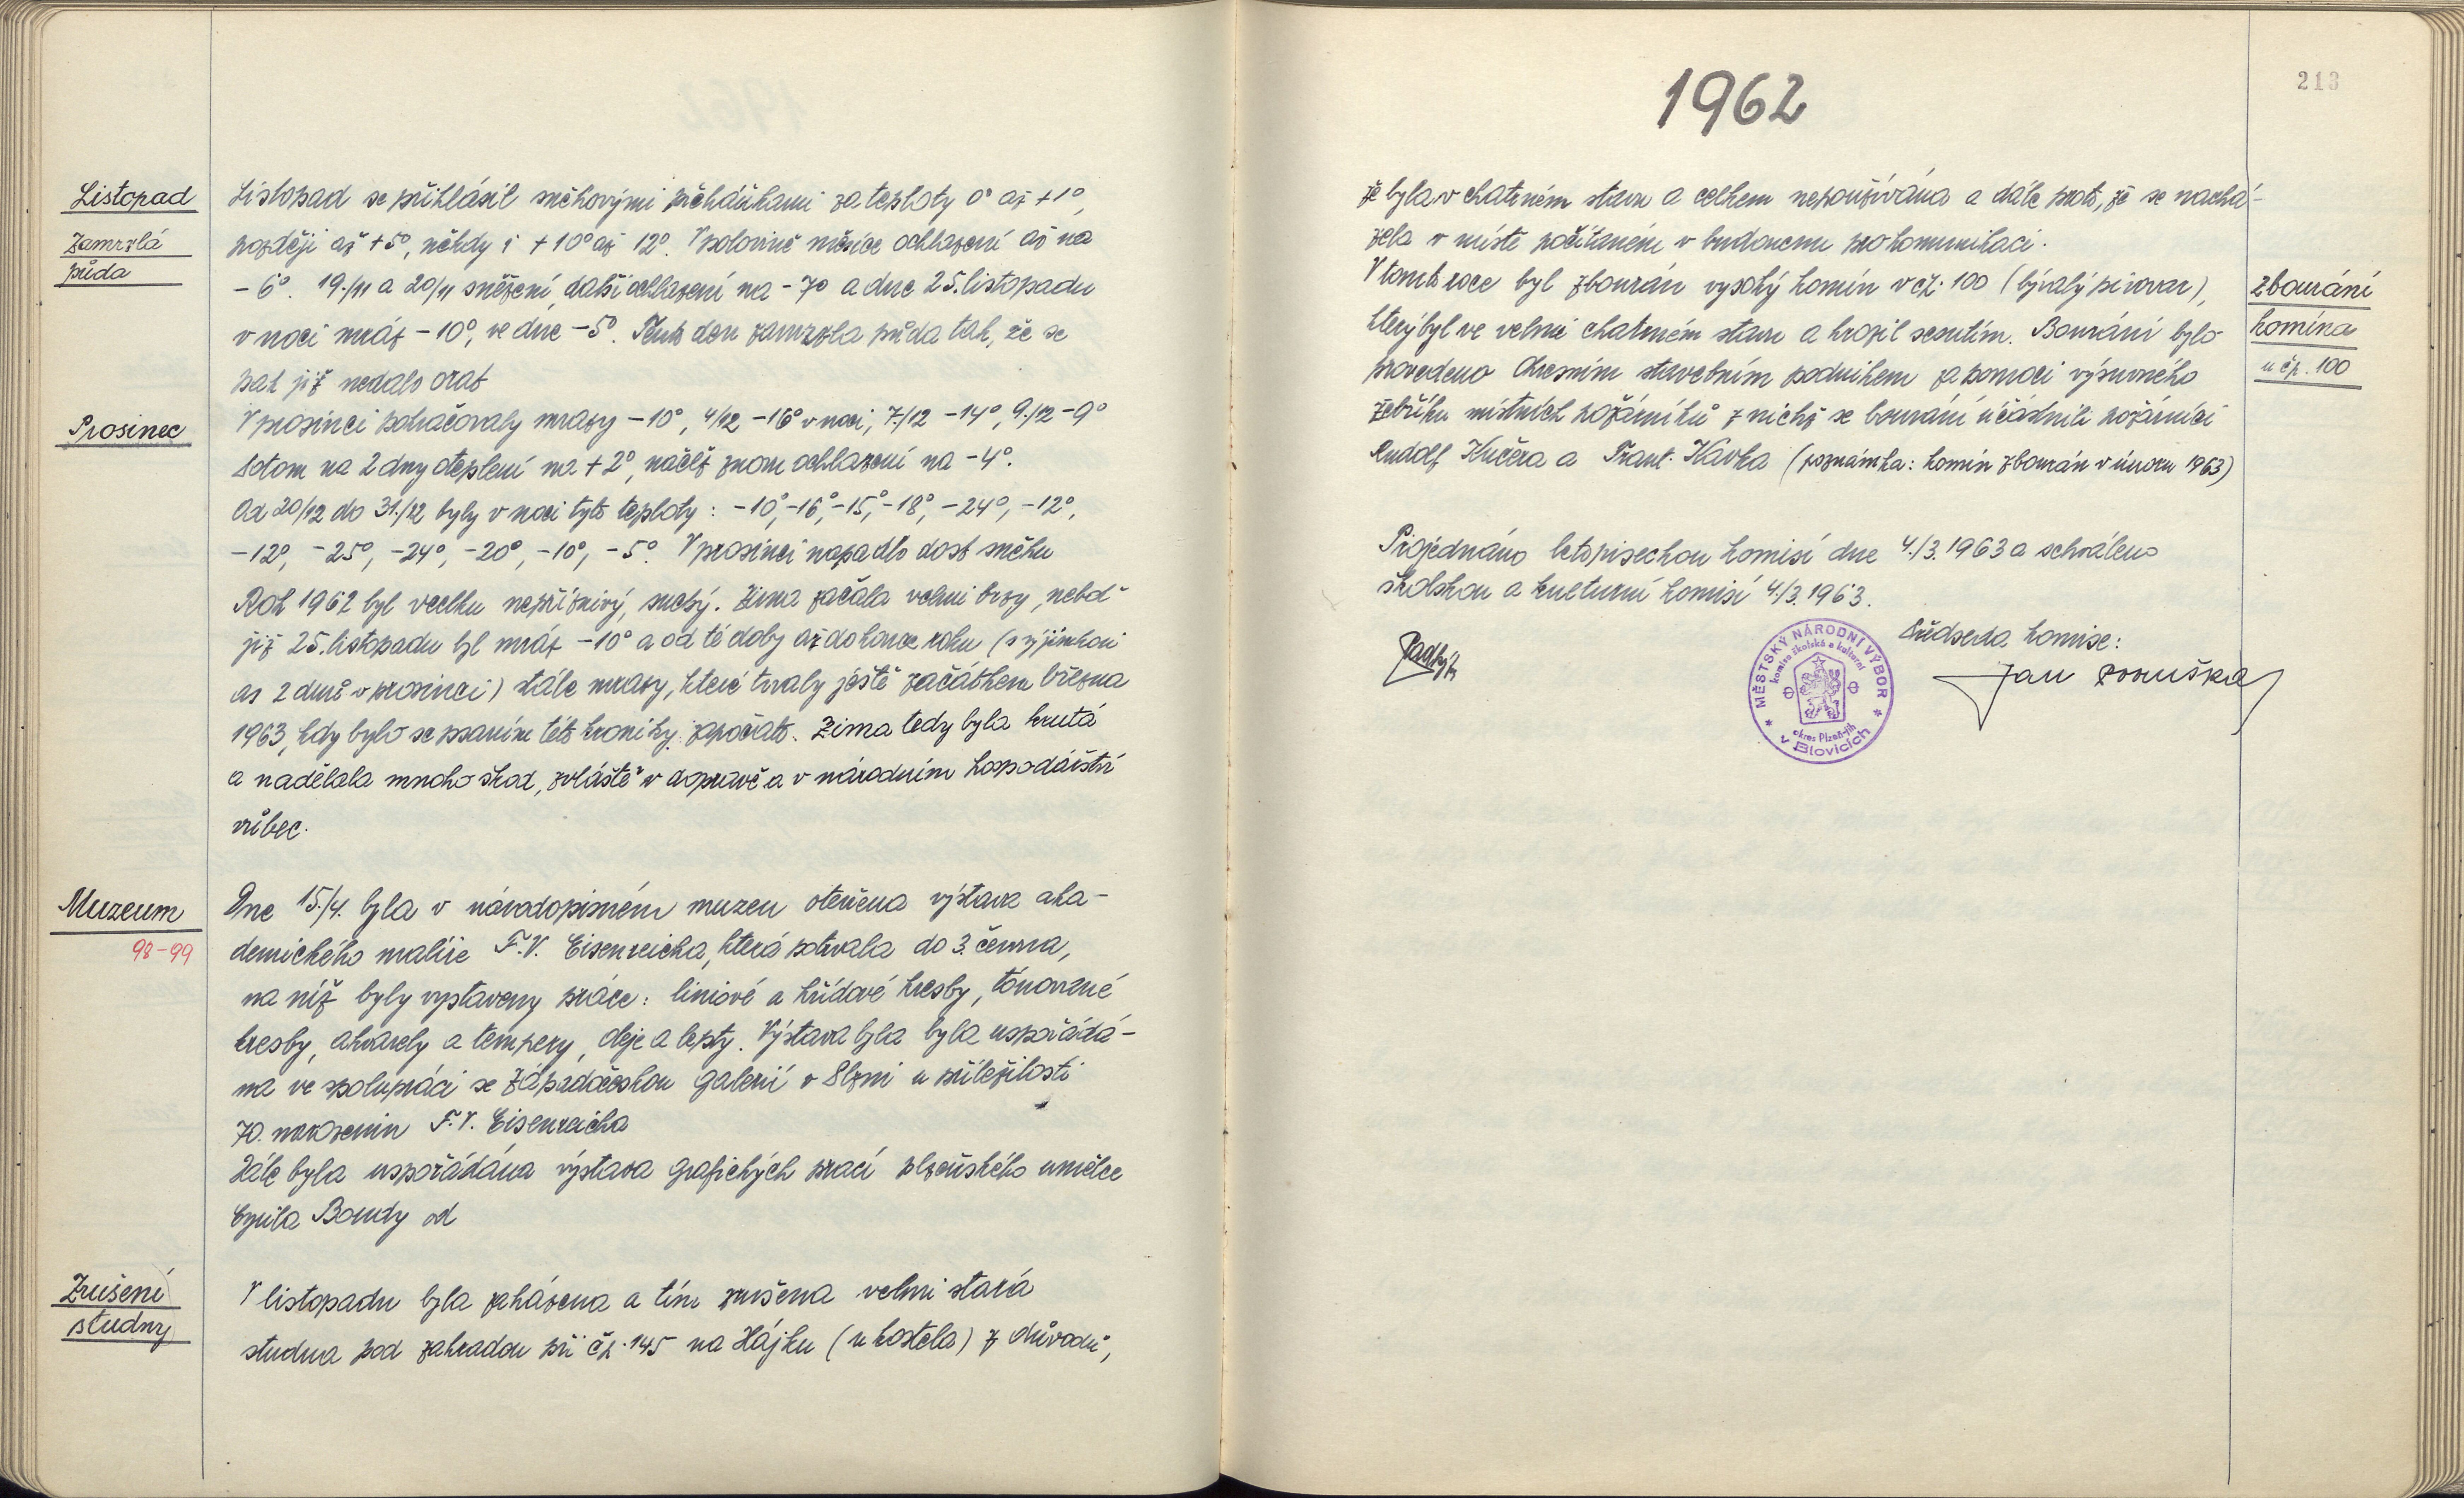 Listopad
Zamrzlá
půda
Listopad se přihlásil sněhovými přeháňkami za teploty 0° až +1°,
později až +5°, někdy i +10° až 12°. V polovině měsíce ochlazení až na
-6°. 19./11 a 20/11 sněžení, další ochlazení na -7° a dne 25. listopadu
v noci mráz -10°, ve dne -5°. Tento den zamrzla půda tak, že se
pak již nedalo orat
Prosinec
V prosinci pokračovaly mrazy -10°, 4/12 -16° v noci, 7./12 -14°, 9./12 -9°
Potom na 2 dny oteplení na +2°, načež znovu ochlazení na -4°.
Od 20/12 do 31./12 byly v noci tyto teploty: -10°, -16°, -15°, -18°, -24°, -12°,
-12°, -25°, -24°, -20°, -10°, -5°. V prosinci napadlo dost sněhu
Rok 1962 byl vcelku nepříznivý, suchý. Zima začala velmi brzy, neboť
již 25. listopadu byl mráz -10° a od té doby až do konce roku (s výjimkou
as 2 dnů v prosinci) stále mrazy, které trvaly ještě začátkem března
1963, kdy bylo se psaním této kroniky započato. Zima tedy byla krutá
a nadělala mnoho škod, zvláště v dopravě a v národním hospodářství
vůbec.
Muzeum
98-99
Dne 15./4. byla v národopisném muzeu otevřena výstava aka-
demického malíře F.V. Eisenreicha, která potrvala do 3. června,
na níž byly vystaveny práce: liniové a křídové kresby, tónované
kresby, akvarely a tempery, oleje a lepty. Výstava byla byla uspořádá-
na ve spolupráci se Západočeskou galerií v Plzni u příležitosti
70. narozenin F.V. Eisenreicha
Dále byla uspořádána výstava grafických prací plzeňského umělce
Cyrila Boudy od
Zrušení
studny
V listopadu byla zaházena a tím zrušena velmi stará
studna pod zahradou při čp. 145 na Hájku (u kostela) z důvodů,
1962
213
že byla v chatrném stavu a celkem nepoužívána a dále proto, že se nachá-
zela v místě počítaném v budoucnu pro komunikaci.
V tomto roce byl zbourán vysoký komín v čp. 100 (bývalý pivovar),
který byl ve velmi chatrném stavu a hrozil sesutím. Bourání bylo
provedeno Okresním stavebním podnikem za pomoci výsuvného
žebříku místních požárníků z nichž se bourání účastnili požárníci
Rudolf Kučera a Frant. Kavka (poznámka: komín zbourán v únoru 1963)
zbourání
komína
u čp. 100
Projednáno letopiseckou komisí dne 4./3. 1963 a schváleno
školskou a kulturní komisí 4./3. 1963.
Předseda komise:
MĚSTSKÝ NÁRODNÍ VÝBOR
komise školská a kulturní
okres Plzeň-jih
v Blovicích
Jan